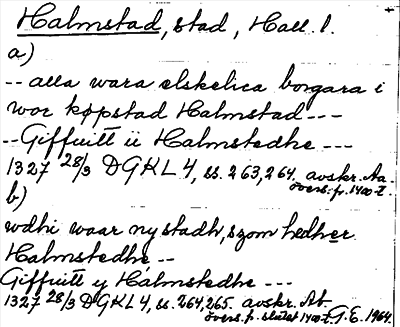 Halmstad, stad, Hall. l.
a)
-- alla wara elskelica borgara i
wor køpstad Halmstad ---
-- Giffuitt ii Halmstedhe ---
1327 28/3 DGKL 4, ss. 263, 264. avskr. Aa.
övers. p. 1400-t.
b)
wdhi waar ny stadh, szom hedher
Halmstedhe --
Giffuitt y Halmstedhe ---
1327 28/3 DGKL 4, ss. 264, 265. avskr. Ab.
övers. p. slutet 1400-t. G.E. 1964.